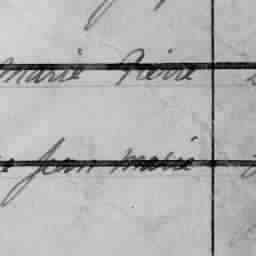 Marie Pierre
Jean Marie